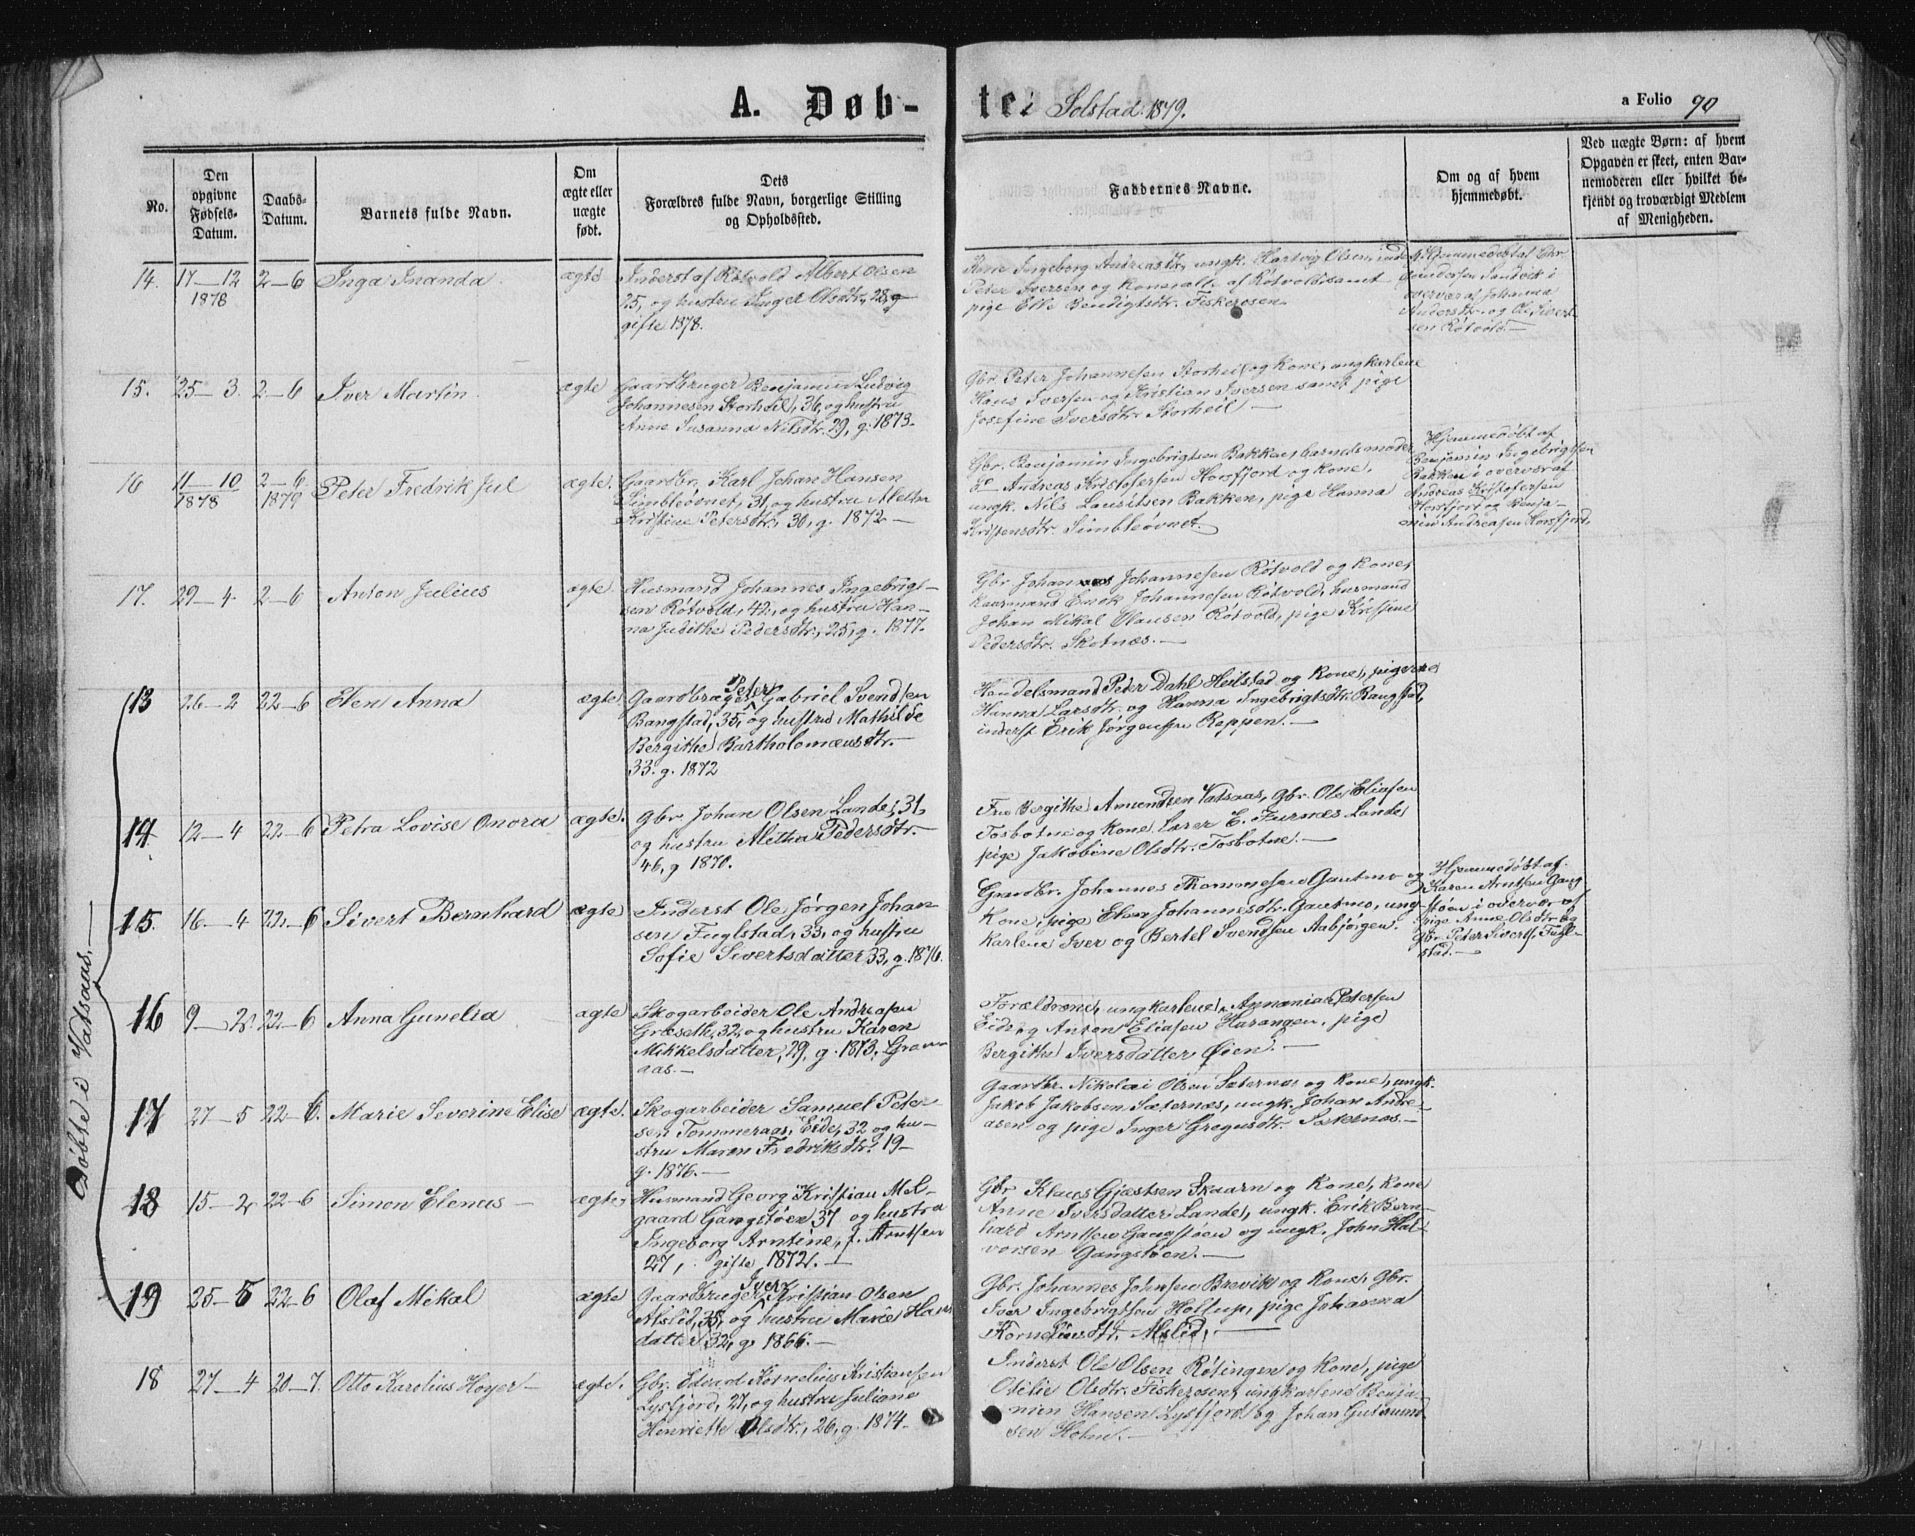 A. Døb-
te i Solstad 1879.
a Folio 90
No.
Den
opgivne
Fødsels-
Datum.
Daabs-
Datum.
Barnets fulde Navn.
Om
ægte eller
uægte
født.
Dets
Forældres fulde Navn, borgerlige Stilling
og Opholdssted.
Faddernes Navne.
Om og af hvem
hjemmedøbt.
Ved uægte Børn: af hvem
Opgaven er skeet, enten Bar-
nemoderen eller hvilket be-
kjendt og troværdigt Medlem
af Menigheden.
14. 17–12 2–6 Inga Inanda ægte
1878
Inderst af Røtvold Albert Olsen
25, og hustru Inger Olsdtr, 28, g
gifte 1878.
Kone Ingeborg Andreasdtr, ungk. Hartvig Olsen,
Peter Iversen og Kone alle af Rotvold samt
pige Elle Bendigtsdtr. Fiskerosen
Hjemmedøbt af Chr.
Andersen Sandvik i
overvær af Johanna
Andersdtr. og Ole Sivert-
sen Røtvold.—
15. 25–3. 2–6 Iver Martin. ægte
Gaardbruger Benjamin Ludvig
Johannesen Storheil, 36, og hustru
Anne Susanna Nilsdtr. 29, g. 1873.
Gbr. Peter Johannesen Storheil og Kone, ungkarlene
Hans Iversen og Kristian Iversen samt pige
Josefine Iversdtr. Storheil —
16 11–10 2–6 Peter Fredrik Jul ægte.
1878 1879
Gaardbr. Karl Johan Hansen
Simbleøvnet, 31, og hustru Aletta
Kristine Petersdtr, 30, g. 1872 —
Gbr. Benjamin Ingebrigtsen Bakken, barnets moder
Andreas Kristofersen Horsfjord og Kone,
ungk. Nils Lauritsen Bakken, pige Hanna
Kristensdtr. Simbleøvnet.
Hjemmedøbt af
Benjamin Ingebrigtsen
Bakken i overvær af
Andreas Kristofersen
Horsfjord og Benja-
min Andreasen Horsfjord.
17. 29–4. 2–6 Anton Julius ægte.
Husmand Johannes Ingebrigt-
sen Rötvold, 42, og hustru Han-
na Judithe Pedersdtr, 25, g. 1877.
Gbr. Johannes Johannesen Rötvold og Kone,
Husmand Enok Johannesen Rötvold, husmand
Johan Mikal Olausen Rötvold, pige Kristine
Pedersdtr. Skotnæs. —
Døbte i Vatsaas.—
13 26–2 22–6 Elen Anna ægte.
Gaardbruger Peter Gabriel Svendsen
Bangstad, 35, og hustru Mathilde
Bergithe Bartholomæusdtr.
33. g. 1872
Handelsmand Peder Dahl Heilstad og Kone, pigerne
Hanna Larsdtr. og Hanna Ingebrigtsdtr. Bangstad,
inderst Erik Jørgensen Reppen. —
14. 12–4 22–6 Petra Lovise Onora ægte.
Gbr. Johan Olsen Lande, 31,
og hustru Alethea Pedersdtr.
46, g 1870.
Fru Bergithe Amundsen Vatsaas, Gbr. Ole Eliasen
Tosbotn og Kone, Lærer E. Furnes Lande
pige Jakobine Olsdtr. Tosbotne.—
15. 16–4 22–6 Sivert Bernhard ægte
Inderst Ole Jørgen Johan-
sen Fuglstad, 33, og hustru
Sofie Sivertsdatter 33, g. 1876.
Gaardbr. Johannes Thommesen Gautmo og
Kone, pige Elen Johannesdtr. Gautmo, ung-
karlene Iver og Bertel Svendsen Aabjørgen.
Hjemmedøbt af
Karen Arntsen Gang-
støen i overvær af
pige Anne Olsdtr. og
Gbr. Peter Siverts. Fugl-
stad.—
16 9–2 22–6 Anna Gunelia ægte
Skogarbeider Ole Andreasen
Græseth, 32, og hustru Karen
Mikkelsdatter, 29, g. 1873, Gran-
aas.—
Forældrene, ungkarlene Annanias Petersen
Eide og Anton Eliasen Harangen, pige
Bergithe Iversdatter Øien.—
17 27–5 22–6. Marie Severine Elise ægte.
Skogarbeider Samuel Peter-
sen Tommeraas, Eide, 32 og hu-
stru Maren Fredriksdtr. 19 —
g. 1876. —
Gaardbr. Nikolai Olsen Sæternæs og Kone, ungk.
Jakob Jakobsen Sæternæs, ungk. Johan Andre-
asen og pige Inger Gregusdtr. Sæternæs.—
18 15–2 22–6 Simon Elenus — ægte
Husmand Georg Kristian Mel-
gaard Gangstøen 37 og hustru
Ingeborg Arntine, f. Arntsen
27, gifte 1872. —
Gbr Klaus Gjæstsen Skaarn og Kone, Kone
Anne Iversdatter Lande, ungk. Erik Bern-
hard Arntsen Gangstøen og ungk. John Hal-
vorsen Gangstøen. —
19 25–5 22–6 Olaf Mikal ægte
Gaardbruger Iver Kristian Olsen
Alslid, 35, og hustru Marie Hans-
datter 32, g. 1866.—
Gbr. Johannes Johnsen Brevik og Kone, Gbr.
Iver Ingebrigtsen Heltup, pige Johanna
Korneliusdtr. Alslid. —
18 27–4 20–7. Otto Karolius Hoyer — ægte.
Gbr. Edvard Kornelius Kristiansen
Lysfjord, 27, og hustru Juliane
Henriette Olsdtr, 26, g. 1874.
Inderst Ole Olsen Røtingen og Kone, pige
Otelie Olsdtr. Fiskerosen, ungkarlene Benja-
min Hansen Lysfjord og Johan Gutormd
sen Holm.—